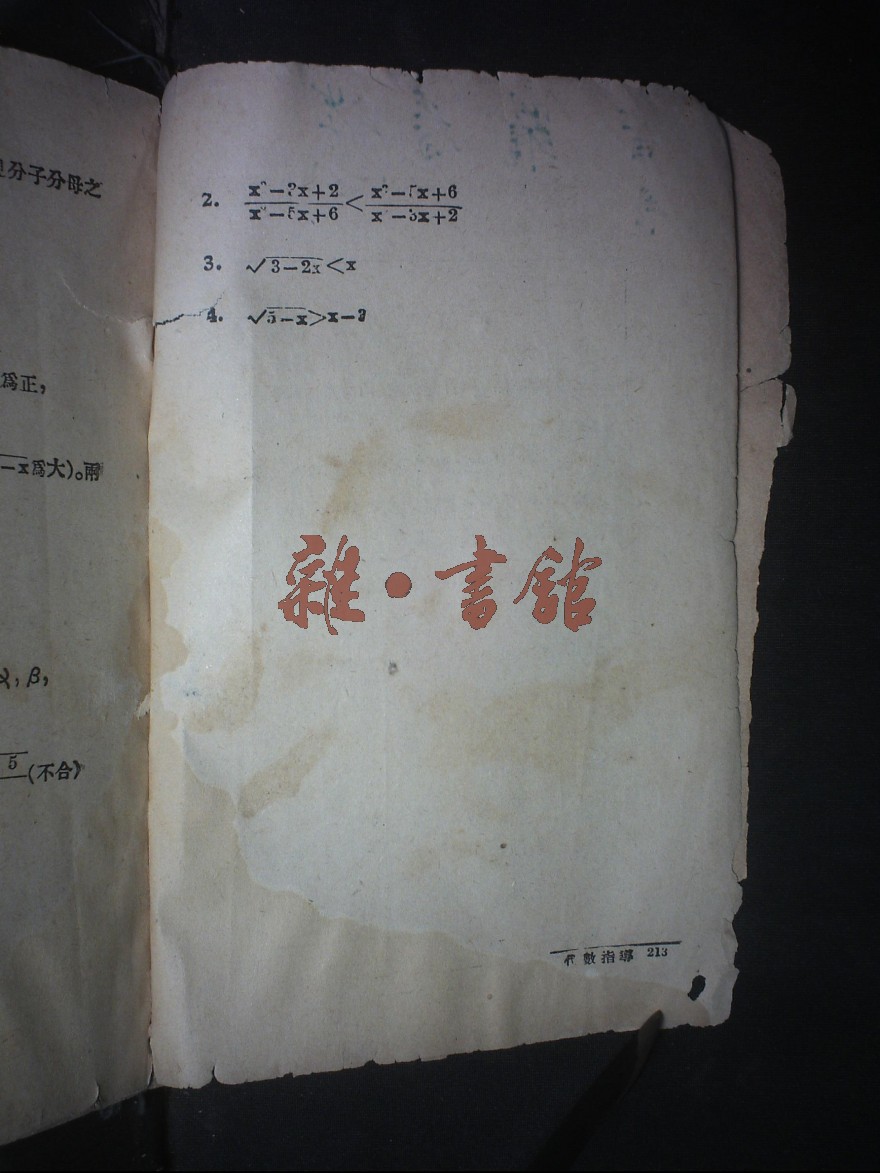 分子分母之
爲正,
－x爲大)。兩
β,
5 (不合)
2. x²－3x＋2 / x²－5x＋6 < x²－5x＋6 / x²－3x＋2
3. √3－2x < x
4. √5－x > x－3
雜·書館
代數指導 213